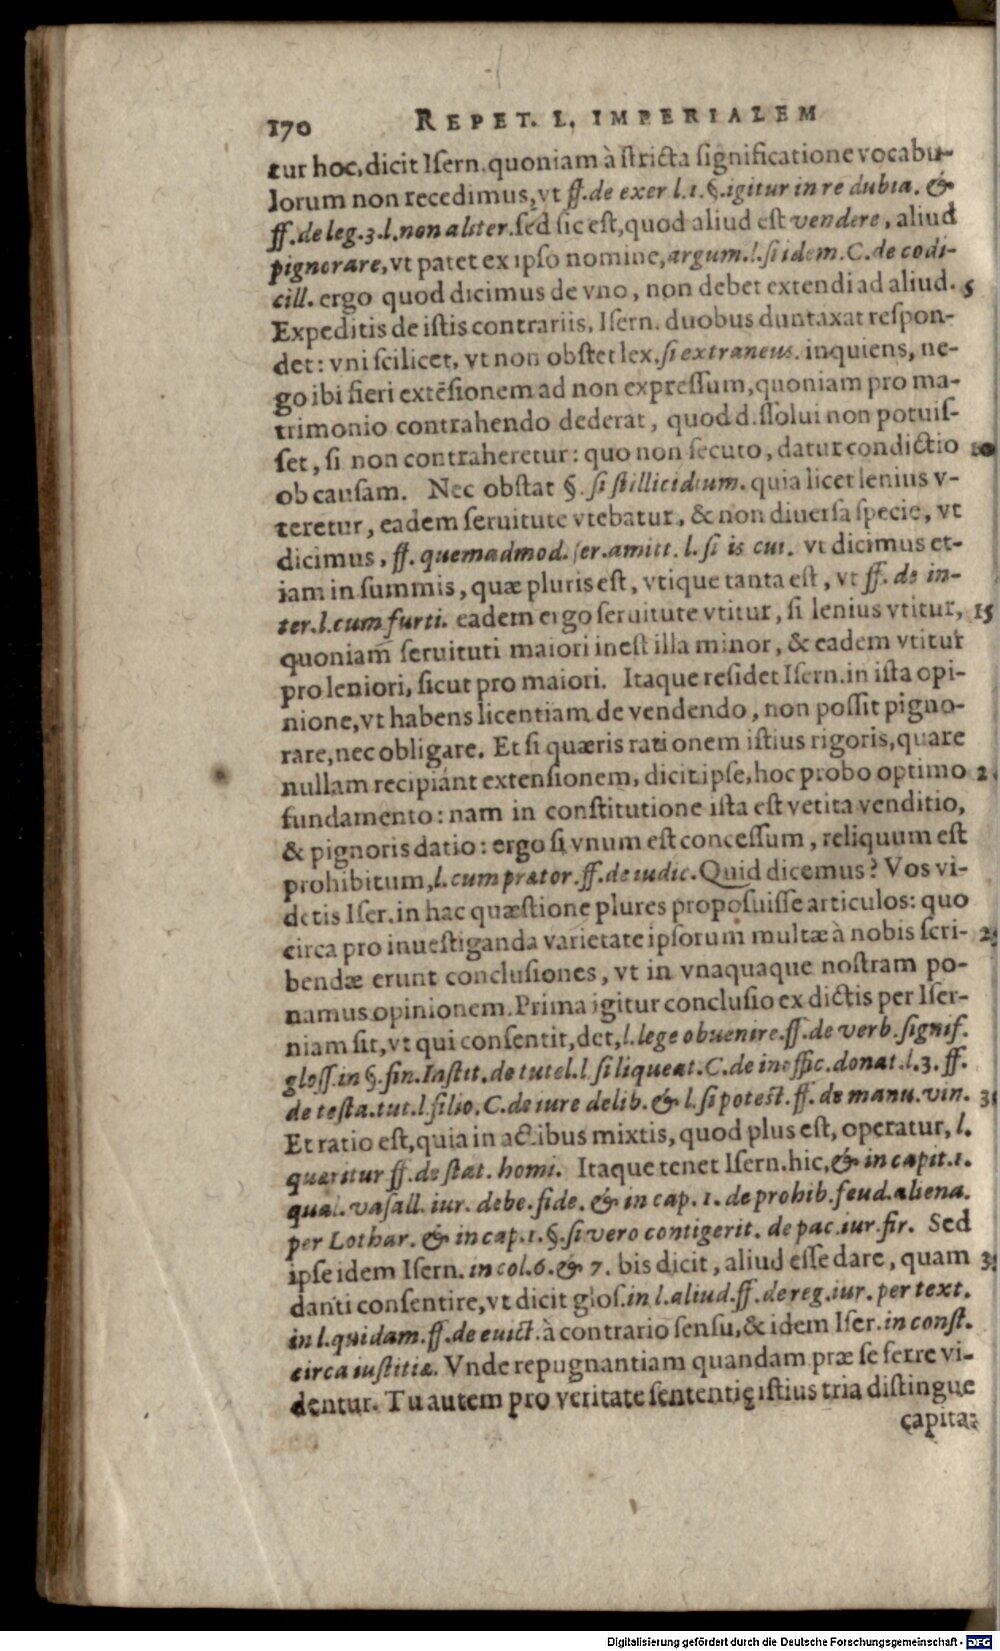 170 REPET. L. IMPERIALEM
tur hoc, dicit Isern. quoniam à stricta significatione vocabu-
lorum non recedimus, vt ff. de exer l. 1. §. igitur in re dubia. &
ff. de leg. 3. l. non aliter. sed sic est, quod aliud est vendere, aliud
pignorare, vt patet ex ipso nomine, argum. l. si idem. C. de codi-
cill. ergo quod dicimus de vno, non debet extendi ad aliud. 5
Expeditis de istis contrariis, Isern. duobus duntaxat respon-
det: vni scilicet, vt non obstet lex. si extraneus. inquiens, ne-
go ibi fieri extēsionem ad non expressum, quoniam pro ma-
trimonio contrahendo dederat, quod dissolui non potuis-
set, si non contraheretur: quo non secuto, datur condictio 10
ob causam. Nec obstat §. si stillicidium. quia licet lenius v-
teretur, eadem seruitute vtebatur, & non diuersa specie, vt
dicimus, ff. quemadmod. ser. amitt. l. si is cui. vt dicimus et-
iam in summis, quæ pluris est, vtique tanta est, vt ff. de in-
ter. l. cum furti. eadem ergo seruitute vtitur, si lenius vtitur, 15
quoniam seruituti maiori inest illa minor, & eadem vtitur
pro leniori, sicut pro maiori. Itaque residet Isern. in ista opi-
nione, vt habens licentiam de vendendo, non possit pigno-
rare, nec obligare. Et si quæris rationem istius rigoris, quare
nullam recipiant extensionem, dicit ipse, hoc probo optimo 2
fundamento: nam in constitutione ista est vetita venditio,
& pignoris datio: ergo si vnum est concessum, reliquum est
prohibitum, l. cum prætor. ff. de iudic. Quid dicemus? Vos vi-
detis Iser. in hac quæstione plures proposuisse articulos: quo
circa pro inuestiganda varietate ipsorum multæ à nobis scri- 2
bendæ erunt conclusiones, vt in vnaquaque nostram po-
namus opinionem. Prima igitur conclusio ex dictis per Iser-
niam sit, vt qui consentit, det, l. lege obuenire. ff. de verb. signif.
gloss. in §. fin. Instit. de tutel. l. si liqueat. C. de inoffic. donat. l. 3. ff.
de testa. tut. l. filio. C. de iure delib. & l. si potest. ff. de manu. vin. 3
Et ratio est, quia in actibus mixtis, quod plus est, operatur, l.
quæritur ff. de stat. homi. Itaque tenet Isern. hic, & in capit. 1.
qual. vasall. iur. debe. fide. & in cap. 1. de prohib. feud. aliena.
per Lothar. & in cap. 1. §. si vero contigerit. de pac. iur. fir. Sed
ipse idem Isern. in col. 6. & 7. bis dicit, aliud esse dare, quam 3
danti consentire, vt dicit glos. in l. aliud. ff. de reg. iur. per text.
in l. quidam. ff. de euict. à contrario sensu, & idem Iser. in const.
circa iustitiæ. Vnde repugnantiam quandam præ se ferre vi-
dentur. Tu autem pro veritate sententię istius tria distingue
capita:
Digitalisierung gefördert durch die Deutsche Forschungsgemeinschaft - DFG